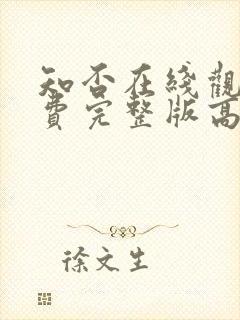 知否在綫觀
費完整版高
徐文生